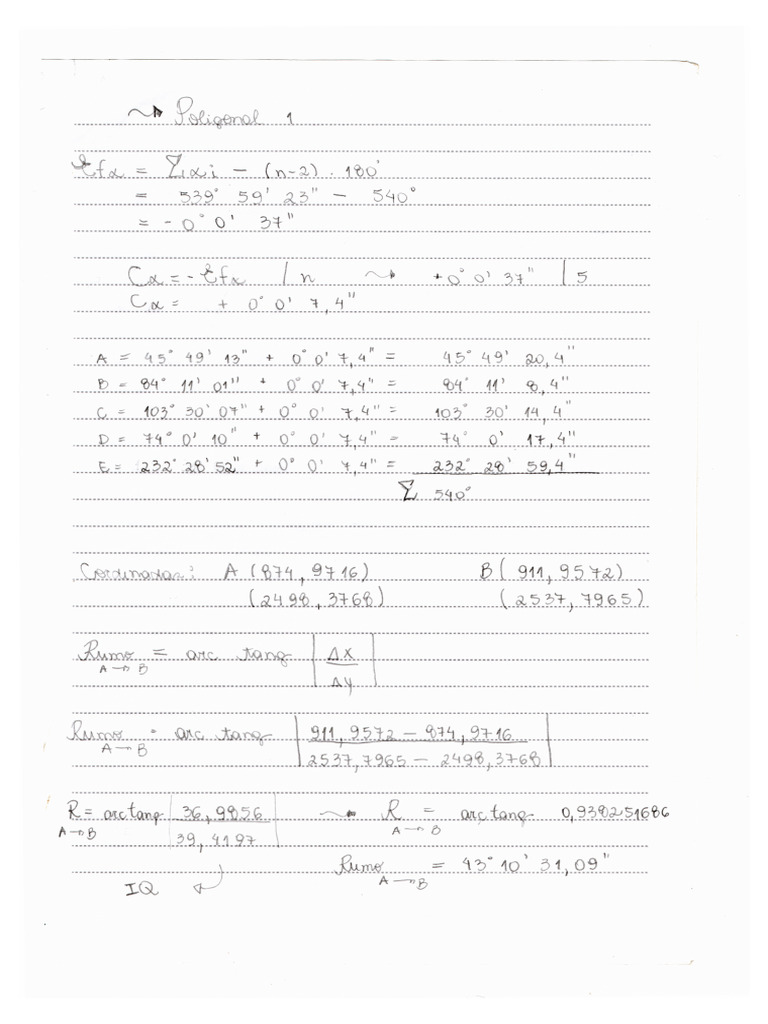 ~→ Poligonal 1
εfα = Σαi - (n-2) . 180°
= 539° 59' 23" - 540°
= - 0° 0' 37"
Cα = - εfα / n ~→ +0° 0' 37" / 5
Cα = + 0° 0' 7,4"
A = 45° 49' 13" + 0° 0' 7,4" = 45° 49' 20,4"
B = 84° 11' 01" + 0° 0' 7,4" = 84° 11' 8,4"
C = 103° 30' 07" + 0° 0' 7,4" = 103° 30' 14,4"
D = 74° 0' 10" + 0° 0' 7,4" = 74° 0' 17,4"
E = 232° 28' 52" + 0° 0' 7,4" = 232° 28' 59,4"
Σ 540°
Cordenadas: A (874,9716) B( 911,9572)
(2498,3768) (2537,7965)
Rumo = arc tang | Δx |
A→B | Δy |
Rumo = arc tang | 911,9572 - 874,9716 |
A→B | 2537,7965 - 2498,3768 |
R = arctang | 36,9856 | ~→ R = arctang 0,938251686
A→B | 39,4197 | A→B
Rumo = 43° 10' 31,09"
A→B
IQ